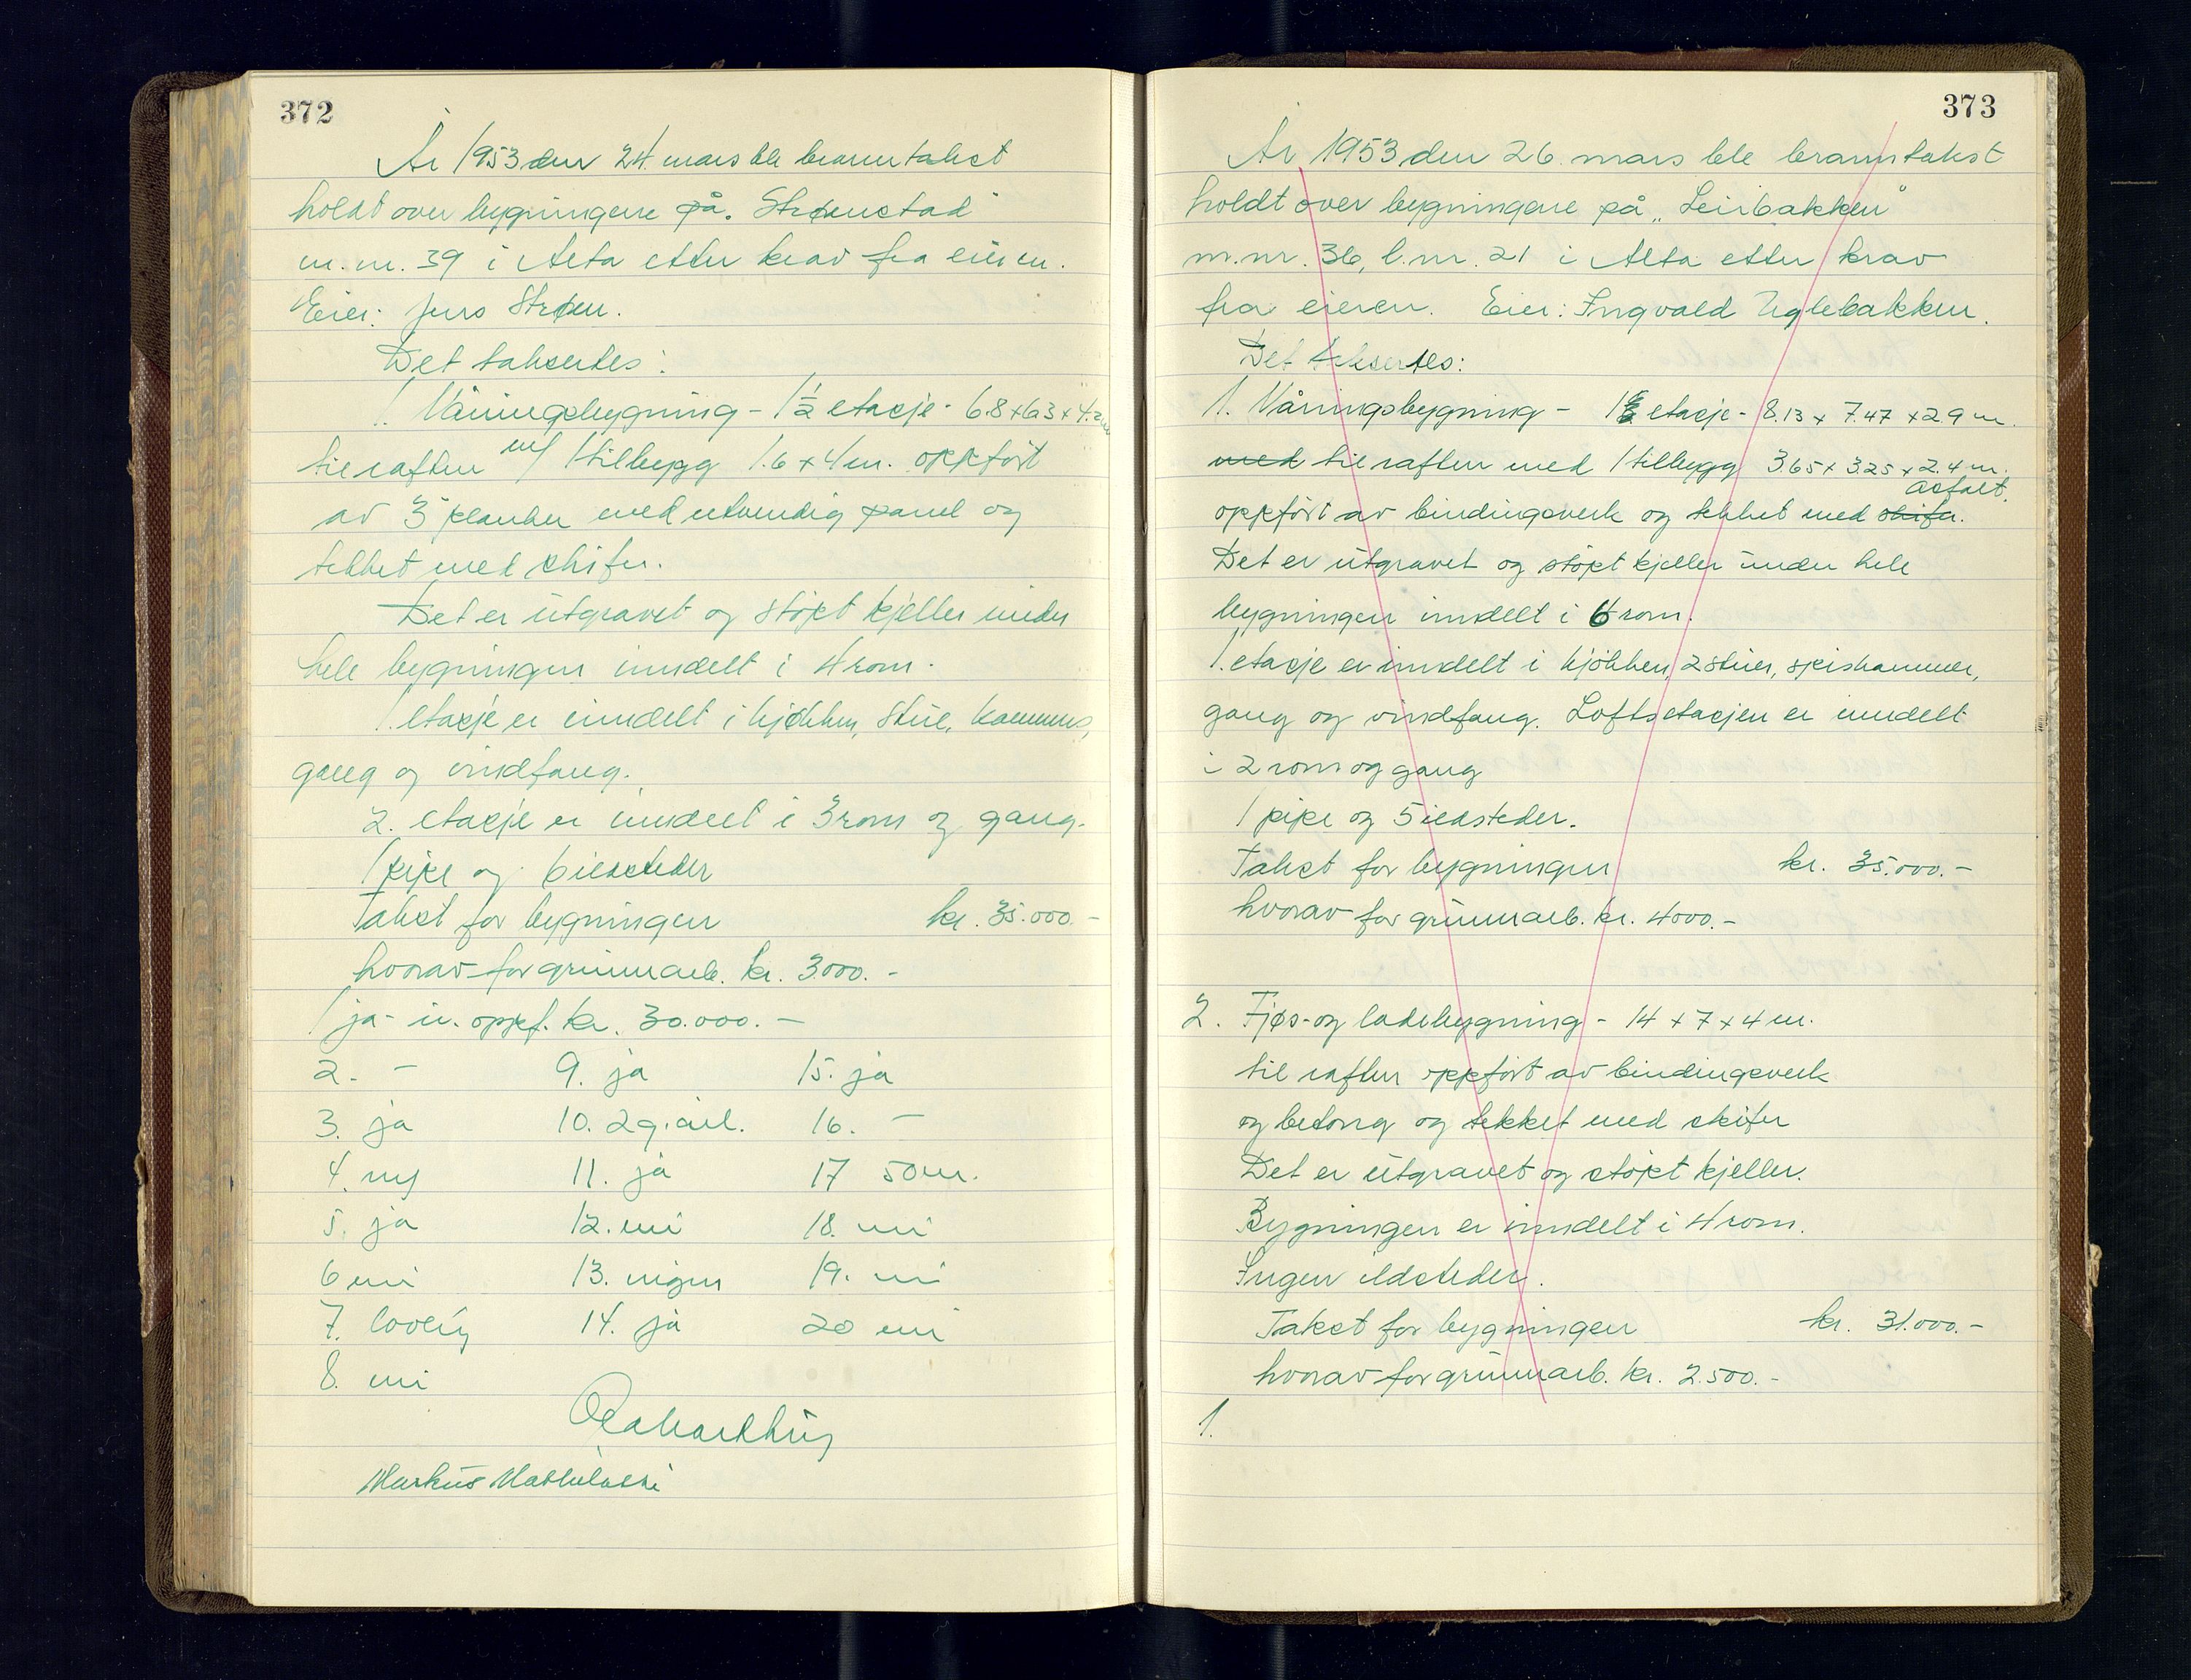 372
År 1953 den 24. mars ble branntakst
holdt over bygningene på „Strømstad"
m.nr. 39 i Alta etter krav fra eieren.
Eier: Jens Strøm.
Det taksertes:
1. Våningsbygning - 1½ etasje - 6.8 x 6.3 x 4.2 m
til raften m/ 1 tilbygg 1.6 x 4 m. oppført
av 3" planker med utvendig panel og
tekket med skifer.
Det er utgravet og støpt kjeller under
hele bygningen inndelt i 4 rom.
1. etasje er inndelt i kjøkken, stue, kammers,
gang og vindfang.
2. etasje er inndelt i 3 rom og gang.
1 pipe og 6 ildsteder
Takst for bygningen kr. 35.000.-
hvorav for grunnarb. kr. 3.000.-
1 ja - u. oppf. kr. 30.000.-
2. - 9. ja 15. ja
3. ja 10. 2 g. årl. 16. -
4. ny 11. ja 17 50 m.
5. ja 12. nei 18. nei
6 nei 13. ingen 19. nei
7. lovlig 14. ja 20 nei
8. nei
Markus
373
År 1953 den 26. mars ble branntakst
holdt over bygningene på „Leirbakken"
m.nr. 36, b.nr. 21 i Alta etter krav
fra eieren. Eier: Ingvald Uglebakken.
Det taksertes:
1. Våningsbygning - 1½ etasje - 8.13 x 7.47 x 2.9 m.
med til raften med 1 tilbygg 3.65 x 3.25 x 2.4 m.
asfalt.
oppført av bindingsverk og tekket med skifer.
Det er utgravet og støpt kjeller under hele
bygningen inndelt i 6 rom.
1. etasje er inndelt i kjøkken, 2 stuer, spiskammer,
gang og vindfang. Loftsetasjen er inndelt
i 2 rom og gang
1 pipe og 5 ildsteder.
Takst for bygningen kr. 35.000.-
hvorav for grunnarb. kr. 4000.-
2. Fjøs- og ladebygning - 14 x 7 x 4 m.
til raften oppført av bindingsverk
og betong og tekket med skifer
Det er utgravet og støpt kjeller.
Bygningen er inndelt i 4 rom.
Ingen ildsteder.
Takst for bygningen kr. 31.000.-
hvorav for grunnarb. kr. 2.500.-
1.